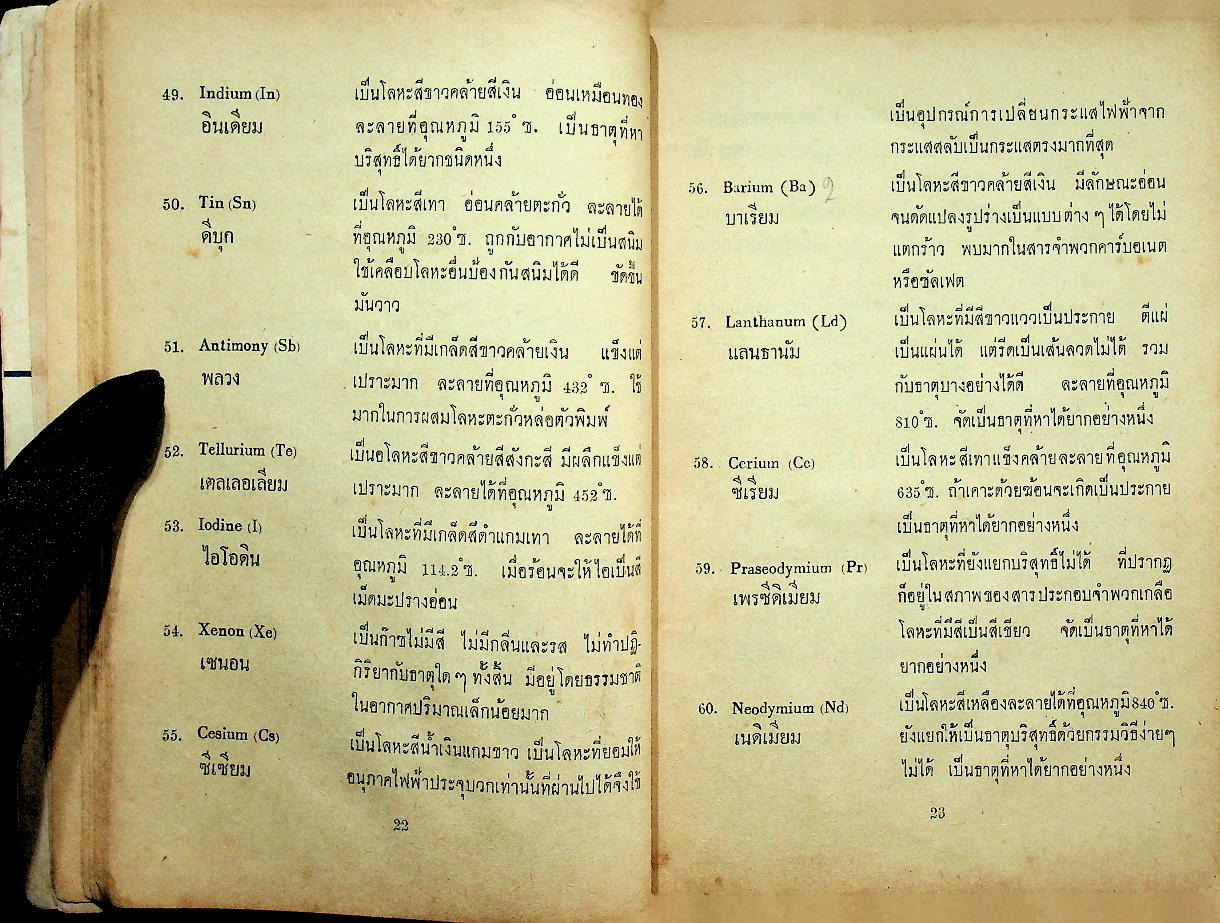 49. Indium (In) เป็นโลหะสีขาวคล้ายสีเงิน อ่อนเหมือนทอง
อินเดียม ละลายที่อุณหภูมิ 155° ซ. เป็นธาตุที่หา
บริสุทธิ์ได้ยากชนิดหนึ่ง
50. Tin (Sn) เป็นโลหะสีเทา อ่อนคล้ายตะกั่ว ละลายได้
ดีบุก ที่อุณหภูมิ 230° ซ. ถูกกับอากาศไม่เป็นสนิม
ใช้เคลือบโลหะอื่นป้องกันสนิมได้ดี ขัดขึ้น
มันวาว
51. Antimony (Sb) เป็นโลหะที่มีเกล็ดสีขาวคล้ายเงิน แข็งแต่
พลวง เปราะมาก ละลายที่อุณหภูมิ 432° ซ. ใช้
มากในการผสมโลหะตะกั่วหล่อตัวพิมพ์
52. Tellurium (Te) เป็นอโลหะสีขาวคล้ายสีสังกะสี มีผลึกแข็งแต่
เตลเลอเลี่ยม เปราะมาก ละลายได้ที่อุณหภูมิ 452° ซ.
53. Iodine (I) เป็นโลหะที่มีเกล็ดสีดำแกมเทา ละลายได้ที่
ไอโอดิน อุณหภูมิ 114.2° ซ. เมื่อร้อนจะให้ไอเป็นสี
เม็ดมะปรางอ่อน
54. Xenon (Xe) เป็นก๊าซไม่มีสี ไม่มีกลิ่นและรส ไม่ทำปฏิ-
เซนอน กิริยากับธาตุใด ๆ ทั้งสิ้น มีอยู่โดยธรรมชาติ
ในอากาศปริมาณเล็กน้อยมาก
55. Cesium (Cs) เป็นโลหะสีน้ำเงินแกมขาว เป็นโลหะที่ยอมให้
ซีเซียม อนุภาคไฟฟ้าประจุบวกเท่านั้นที่ผ่านไปได้จึงใช้
22
เป็นอุปกรณ์การเปลี่ยนกระแสไฟฟ้าจาก
กระแสสลับเป็นกระแสตรงมากที่สุด
56. Barium (Ba) 2 เป็นโลหะสีขาวคล้ายสีเงิน มีลักษณะอ่อน
บาเรียม จนดัดแปลงรูปร่างเป็นแบบต่าง ๆ ได้โดยไม่
แตกร้าว พบมากในสารจำพวกคาร์บอเนต
หรือซัลเฟต
57. Lanthanum (Ld) เป็นโลหะที่มีสีขาวแวววเป็นประกาย ตีแผ่
แลนธานัม เป็นแผ่นได้ แต่รีดเป็นเส้นลวดไม่ได้ รวม
กับธาตุบางอย่างได้ดี ละลายที่อุณหภูมิ
810° ซ. จัดเป็นธาตุที่หาได้ยากอย่างหนึ่ง
58. Cerium (Ce) เป็นโลหะสีเทาแข็งคล้ายละลายที่อุณหภูมิ
ซีเรียม 635° ซ. ถ้าเคาะด้วยฆ้อนจะเกิดเป็นประกาย
เป็นธาตุที่หาได้ยากอย่างหนึ่ง
59. Praseodymium (Pr) เป็นโลหะที่ยังแยกบริสุทธิ์ไม่ได้ ที่ปรากฏ
เพรซีดิเมียม ก็อยู่ในสภาพของสารประกอบจำพวกเกลือ
โลหะที่มีสีเป็นสีเขียว จัดเป็นธาตุที่หาได้
ยากอย่างหนึ่ง
60. Neodymium (Nd) เป็นโลหะสีเหลืองละลายได้ที่อุณหภูมิ 840° ซ.
เนดิเมียม ยังแยกให้เป็นธาตุบริสุทธิ์ด้วยกรรมวิธีง่ายๆ
ไม่ได้ เป็นธาตุที่หาได้ยากอย่างหนึ่ง
23